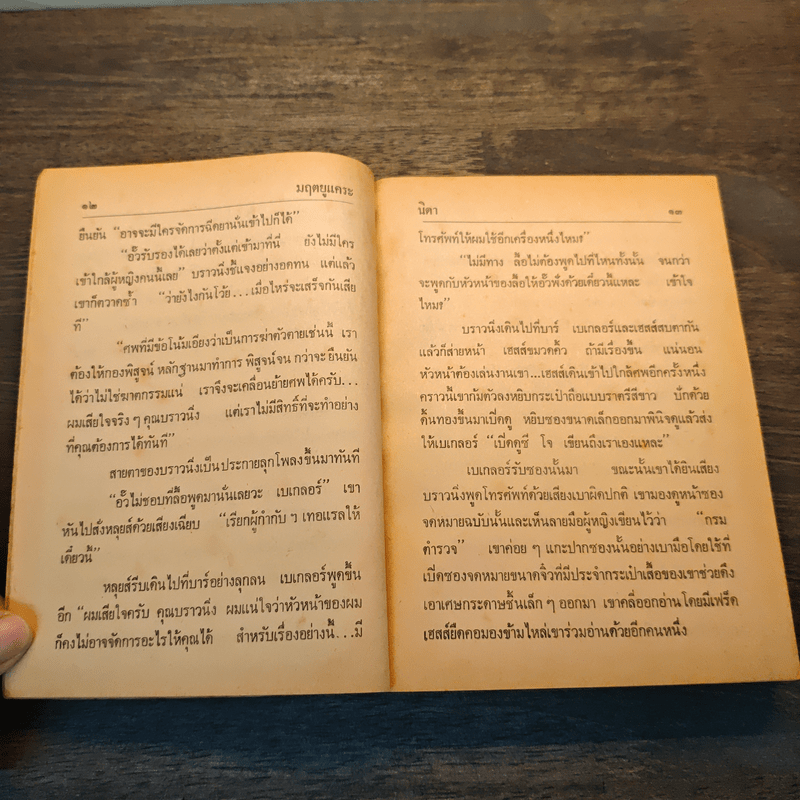 ๑๒ มฤตยูแคระ
ยืนยัน "อาจจะมีใครจัดการฉีดยานั่นเข้าไปก็ได้"
"อั๊วรับรองได้เลยว่าตั้งแต่เข้ามาที่นี่ ยังไม่มีใคร
เข้าใกล้ผู้หญิงคนนี้เลย" บราวนิ่งชี้แจงอย่างอดทน แต่แล้ว
เขาก็ตวาดซ้ำ "ว่ายังไงกันโว้ย...เมื่อไหร่จะเสร็จกันเสีย
ที"
"ศพที่มีข้อโน้มเอียงว่าเป็นการฆ่าตัวตายเช่นนี้ เรา
ต้องให้กองพิสูจน์ หลักฐานมาทำการ พิสูจน์จน กว่าจะ ยืนยัน
ได้ว่าไม่ใช่ฆาตกรรมแน่ เราจึงจะเคลื่อนย้ายศพได้ครับ...
ผมเสียใจจริง ๆ คุณบราวนิ่ง แต่เราไม่มีสิทธิ์ที่จะทำอย่าง
ที่คุณต้องการได้ทันที"
สายตาของบราวนิ่งเป็นประกายลุกโพลงขึ้นมาทันที
"อั๊วไม่ชอบที่ลื้อพูดมานั่นเลยวะ เบเกลอร์" เขา
หันไปสั่งหลุยส์ด้วยเสียงเฉียบ "เรียกผู้กำกับ ฯ เทอแรลให้
เดี๋ยวนี้"
หลุยส์รีบเดินไปที่บาร์อย่างลุกลน เบเกลอร์พูดขึ้น
อีก "ผมเสียใจครับ คุณบราวนิ่ง ผมแน่ใจว่าหัวหน้าของผม
ก็คงไม่อาจจัดการอะไรให้คุณได้ สำหรับเรื่องอย่างนี้...มี
นิดา ๑๓
โทรศัพท์ให้ผมใช้อีกเครื่องหนึ่งไหม?"
"ไม่มีทาง ลื้อไม่ต้องพูดไปที่ไหนทั้งนั้น จนกว่า
จะพูดกับหัวหน้าของลื้อให้อั๊วฟังด้วยเดี๋ยวนี้แหละ เข้าใจ
ไหม?"
บราวนิ่งเดินไปที่บาร์ เบเกลอร์และเฮสส์สบตากัน
แล้วก็ส่ายหน้า เฮสส์ขมวดคิ้ว ถ้ามีเรื่องขึ้น แน่นอน
หัวหน้าต้องเล่นงานเขา...เฮสส์เดินเข้าไปใกล้ศพอีกครั้งหนึ่ง
คราวนี้เขาก้มตัวลงหยิบกระเป๋าถือแบบราตรีสีขาว ปักด้วย
ดิ้นทองขึ้นมาเปิดดู หยิบซองขนาดเล็กออกมาพินิจดูแล้วส่ง
ให้เบเกลอร์ "เปิดดูซี โจ เขียนถึงเราเองแหละ"
เบเกลอร์รับซองนั้นมา ขณะนั้นเขาได้ยินเสียง
บราวนิ่งพูดโทรศัพท์ด้วยเสียงเบาผิดปกติ เขามองดูหน้าซอง
จดหมายฉบับนั้นและเห็นลายมือผู้หญิงเขียนไว้ว่า "กรม
ตำรวจ" เขาค่อย ๆ แกะปากซองนั้นอย่างเบามือโดยใช้ที่
เปิดซองจดหมายขนาดจิ๋วที่มีประจำกระเป๋าเสื้อของเขาช่วยดึง
เอาเศษกระดาษชิ้นเล็ก ๆ ออกมา เขาคลี่ออกอ่านโดยมีเฟร็ด
เฮสส์ยืดคอมองข้ามไหล่เขาร่วมอ่านด้วยอีกคนหนึ่ง